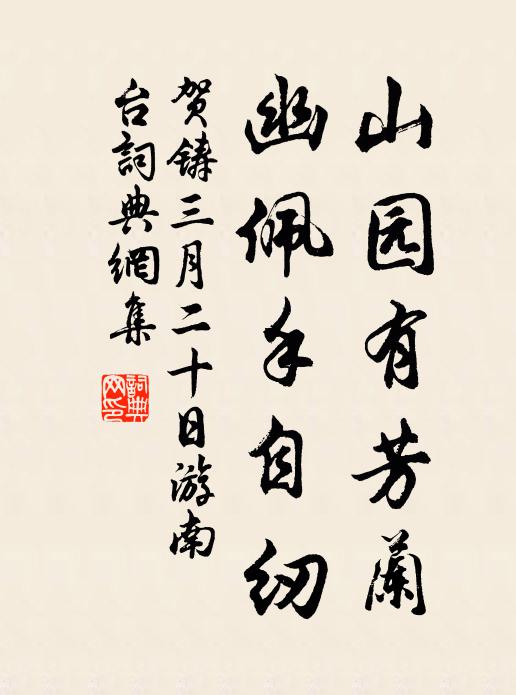 山园有芳蘭
幽佩手自纫
贺鑄三月二十日游南
台詞典網集
詞典
网印